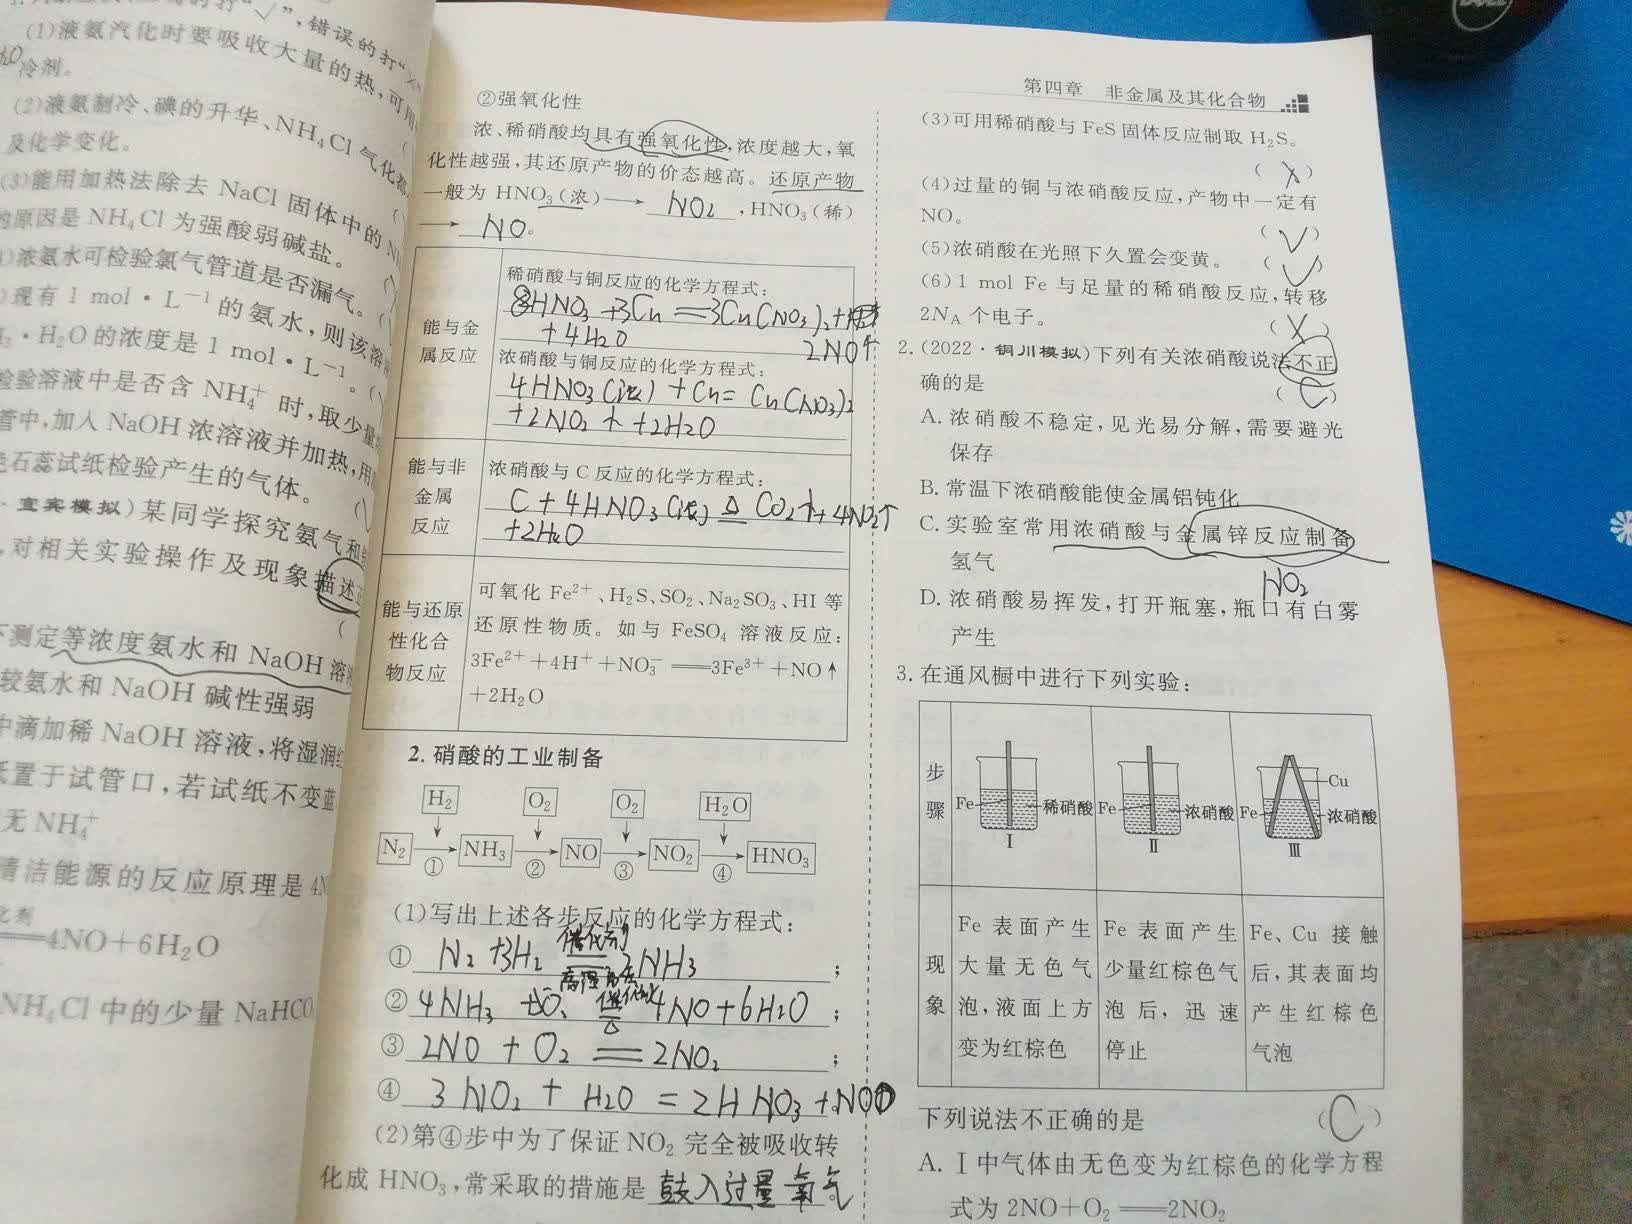 错误的打“
(1)液氨汽化时要吸收大量的热,可用
冷剂。
(2)液氨制冷、碘的升华、NH₄Cl 气化都
及化学变化。
(3)能用加热法除去 NaCl 固体中的
原因是 NH₄Cl 为强酸弱碱盐。
浓氨水可检验氯气管道是否漏气。
现有 1 mol·L⁻¹ 的氨水,则该溶
·H₂O 的浓度是 1 mol·L⁻¹。
检验溶液中是否含 NH₄⁺ 时,取少量
管中,加入 NaOH 浓溶液并加热,用
石蕊试纸检验产生的气体。
·宜宾模拟)某同学探究氨气和
,对相关实验操作及现象描述
测定等浓度氨水和 NaOH 溶
较氨水和 NaOH 碱性强弱
中滴加稀 NaOH 溶液,将湿润
置于试管口,若试纸不变蓝
无 NH₄⁺
清洁能源的反应原理是
══4NO+6H₂O
NH₄Cl 中的少量
第四章 非金属及其化合物
②强氧化性
浓、稀硝酸均具有强氧化性,浓度越大,氧
化性越强,其还原产物的价态越高。还原产物
一般为 HNO₃(浓)→ NO₂ ,HNO₃(稀)
→ NO。
能与金
属反应
稀硝酸与铜反应的化学方程式:
8HNO₃ +3Cu ══3Cu(NO₃)₂+
+4H₂O 2NO↑
浓硝酸与铜反应的化学方程式:
4HNO₃(浓) + Cu = Cu(NO₃)₂
+2NO₂↑ +2H₂O
能与非
金属
反应
浓硝酸与 C 反应的化学方程式:
C + 4HNO₃(浓) △══ CO₂↑+ 4NO₂↑
+2H₂O
能与还原
性化合
物反应
可氧化 Fe²⁺、H₂S、SO₂、Na₂SO₃、HI 等
还原性物质。如与 FeSO₄ 溶液反应:
3Fe²⁺+4H⁺+NO₃⁻══3Fe³⁺+NO↑
+2H₂O
2. 硝酸的工业制备
H₂ O₂ O₂ H₂O
N₂ → NH₃ → NO → NO₂ → HNO₃
① ② ③ ④
(1)写出上述各步反应的化学方程式:
催化剂
① N₂ +3H₂ ══ 2NH₃ ;
高温高压
② 4NH₃ +5O₂ 催化剂══△ 4NO+6H₂O ;
③ 2NO + O₂ ══ 2NO₂ ;
④ 3NO₂ + H₂O = 2HNO₃ +NO
(2)第④步中为了保证 NO₂ 完全被吸收转
化成 HNO₃,常采取的措施是 鼓入过量氧气
(3)可用稀硝酸与 FeS 固体反应制取 H₂S。
(×)
(4)过量的铜与浓硝酸反应,产物中一定有
NO。 (√)
(5)浓硝酸在光照下久置会变黄。 (√)
(6)1 mol Fe 与足量的稀硝酸反应,转移
2Nᴀ 个电子。 (×)
2. (2022·铜川模拟)下列有关浓硝酸说法不正
确的是 (C)
A. 浓硝酸不稳定,见光易分解,需要避光
保存
B. 常温下浓硝酸能使金属铝钝化
C. 实验室常用浓硝酸与金属锌反应制备
氢气
NO₂
D. 浓硝酸易挥发,打开瓶塞,瓶口有白雾
产生
3. 在通风橱中进行下列实验:
步
骤
Fe 稀硝酸
Ⅰ
Fe 浓硝酸
Ⅱ
Cu
Fe 浓硝酸
Ⅲ
现
象
Fe 表面产生
大量无色气
泡,液面上方
变为红棕色
Fe 表面产生
少量红棕色气
泡后,迅速
停止
Fe、Cu 接触
后,其表面均
产生红棕色
气泡
下列说法不正确的是 (C)
A. Ⅰ中气体由无色变为红棕色的化学方程
式为 2NO+O₂══2NO₂
DELL